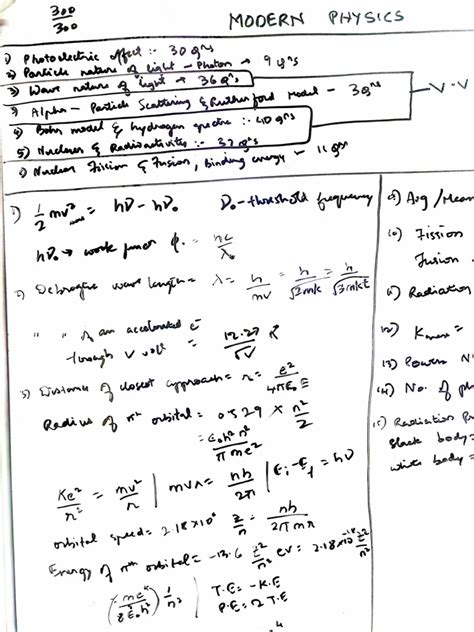 300
300
MODERN PHYSICS
1) Photoelectric effect :- 30 qns
2) Particle nature of light - Photon → 9 qns
3) Wave nature of light → 36 qns
3) Alpha - Particle Scattering & Rutherford Model - 3 qns
4) Bohr model & hydrogen spectra :- 40 qns
5) Nucleus & Radioactivity :- 32 qns
Nuclear Fission & Fusion, Binding energy - 11 qns
V.V
1) 1/2 mv²max = hν - hν₀ ν₀ - threshold frequency
hν₀ → work func φ₀ = hc/λ₀
2) Debroglie wave length = λ = h/mv = h/√2mK = h/√3mkt
" " of an accelerated e⁻ through V volt = 12.27/√V Å
3) Distance of closest approach = r = e²/4πε₀E
Radius of nth orbital = 0.529 × n²/Z
= ε₀h²n²/πme²
Ke²/r² = mv²/r | mvr = nh/2π | Ei - Ef = hν
orbital speed = 2.18×10⁶ Z/n = nh/2πmr
Energy of nth orbital = -13.6 Z²/n² eV = 2.18×10⁻¹⁸ Z²/n²
(me⁴/8ε₀²h²) 1/n² | T.E = -K.E
P.E = 2 T.E
9) Avg / Mean
10) Fission
Fusion
11) Radiation
12) Kmax =
13) Power
14) No. of
15) Radiation
Black body =
white body =